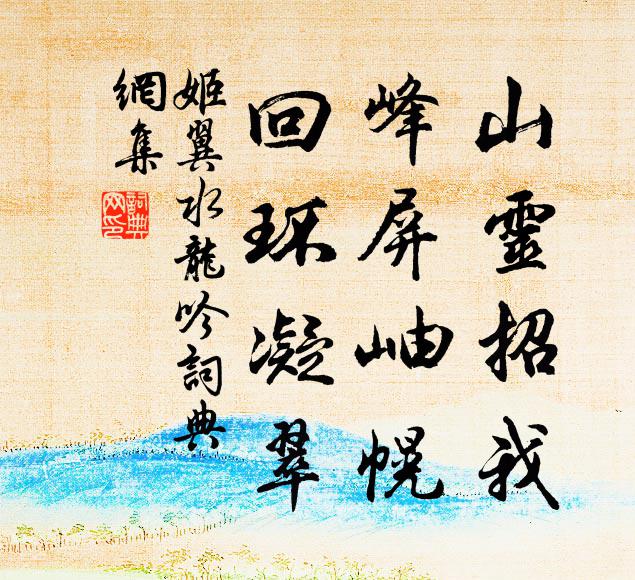 山靈招我
峰屏岫幌
回环凝翠
姬翼水龍吟詞典
網集
詞典
网印